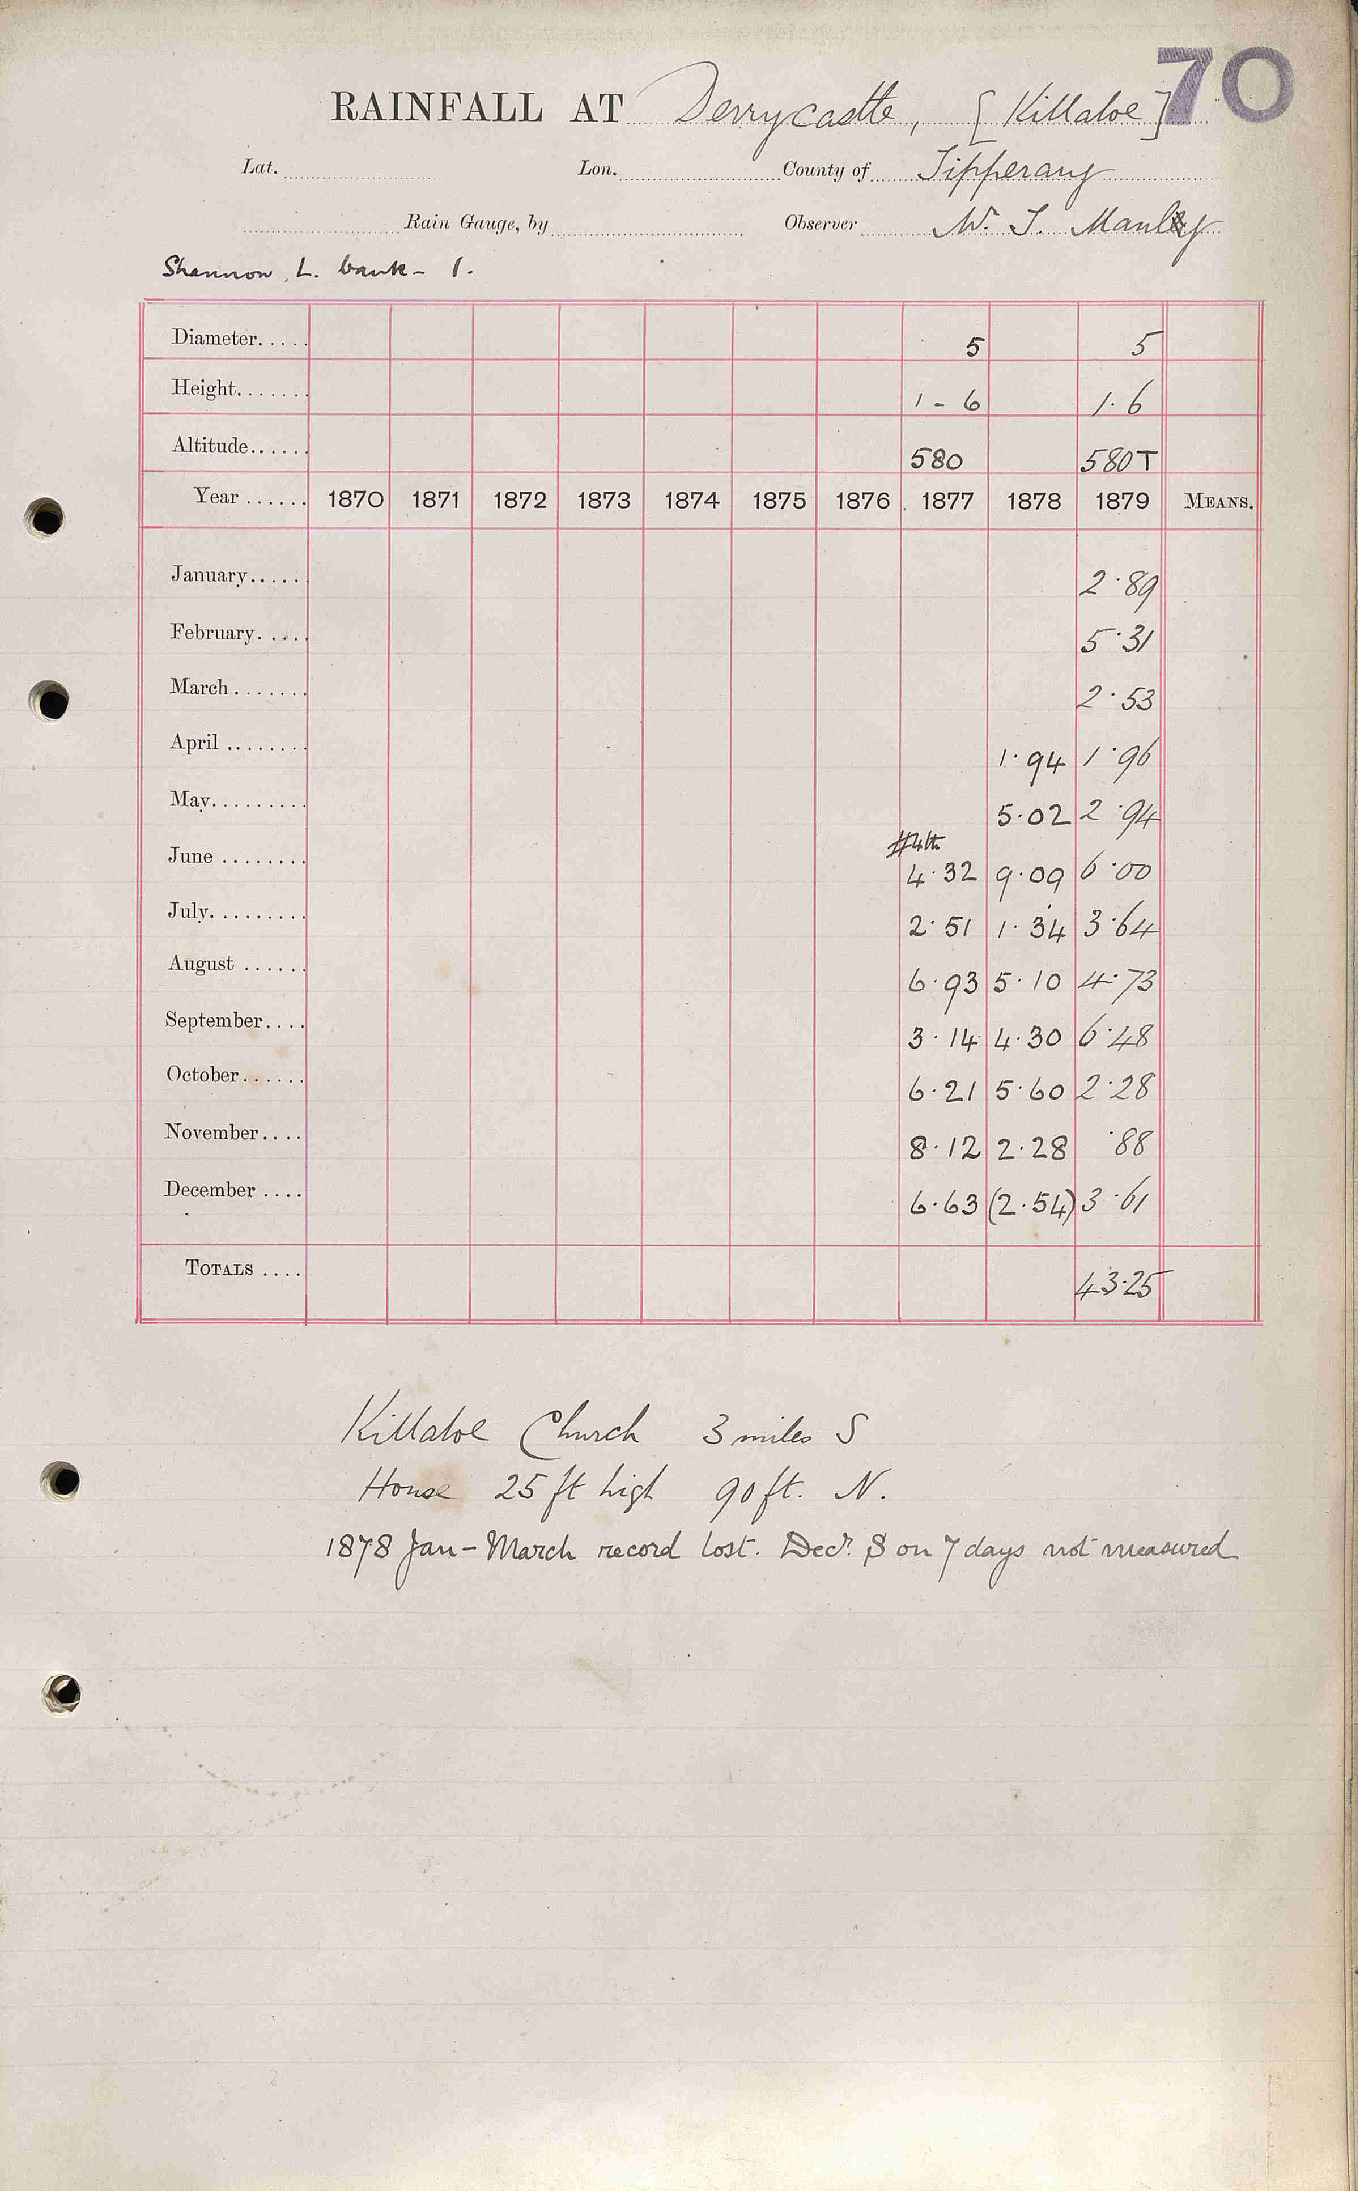 70
RAINFALL AT Derrycastle, [Killaloe]
Lat. Lon. County of Tipperary
Rain Gauge, by Observer W. J. Manley
Shannon, L. bank - 1.
Diameter..... 5 5
Height....... 1-6 1.6
Altitude...... 580 580T
Year ...... 1870 1871 1872 1873 1874 1875 1876 1877 1878 1879 MEANS.
January..... 2.89
February..... 5.31
March....... 2.53
April ........ 1.94 1.96
May......... 5.02 2.94
4th
June ........ 4.32 9.09 6.00
July......... 2.51 1.34 3.64
August ...... 6.93 5.10 4.73
September.... 3.14 4.30 6.48
October...... 6.21 5.60 2.28
November.... 8.12 2.28 .88
December .... 6.63 (2.54) 3.61
TOTALS .... 43.25
Killaloe Church 3 miles S
House 25 ft high 90 ft. N.
1878 Jan - March record lost. Decr. S on 7 days not measured